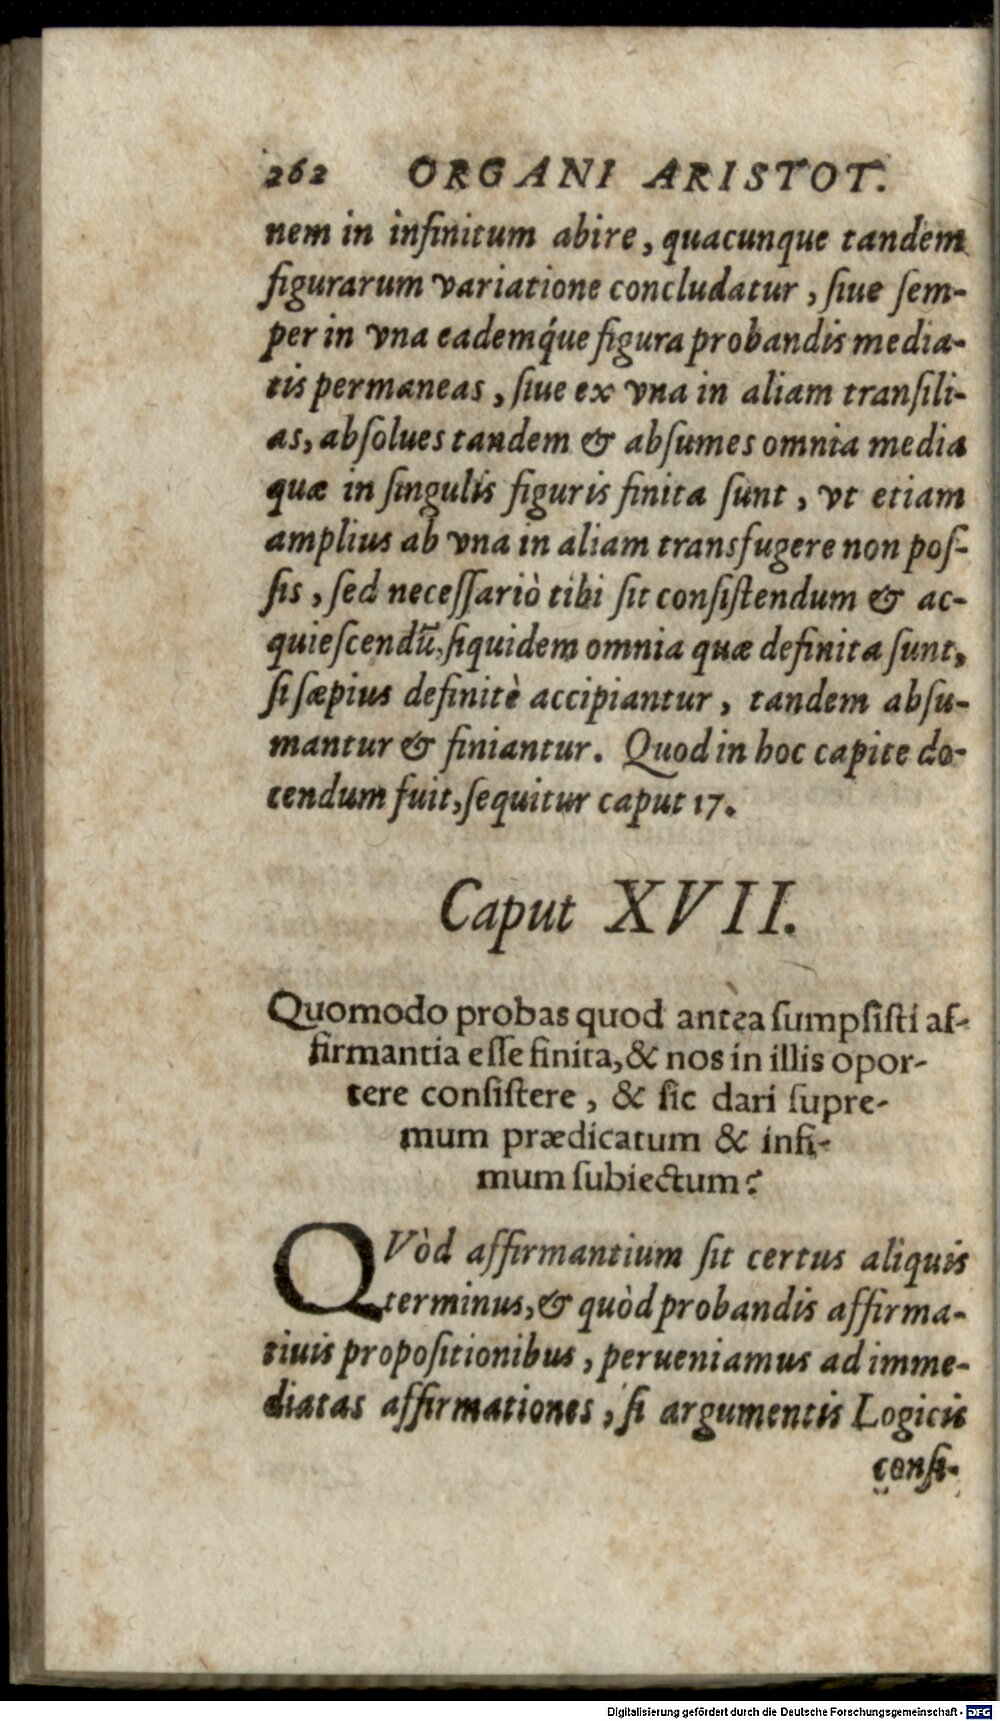 262 ORGANI ARISTOT.
nem in infinitum abire, quacunque tandem
figurarum variatione concludatur, ſiue ſem-
per in vna eademq́ue figura probandis media-
tis permaneas, ſiue ex vna in aliam tranſili-
as, abſolues tandem & abſumes omnia media
quæ in ſingulis figuris finita ſunt, vt etiam
amplius ab vna in aliam transfugere non poſ-
ſis, ſed neceſſariò tibi ſit conſiſtendum & ac-
quieſcendũ, ſiquidem omnia quæ definita ſunt,
ſi ſæpius definitè accipiantur, tandem abſu-
mantur & finiantur. Quod in hoc capite do-
cendum fuit, ſequitur caput 17.
Caput XVII.
Quomodo probas quod antea ſumpſiſti af-
firmantia eſſe finita, & nos in illis opor-
tere conſiſtere, & ſic dari ſupre-
mum prædicatum & infi-
mum ſubiectum?
QVòd affirmantium ſit certus aliquis
terminus, & quòd probandis affirma-
tiuis propoſitionibus, perueniamus ad imme-
diatas affirmationes, ſi argumentis Logicis
conſi-
Digitalisierung gefördert durch die Deutsche Forschungsgemeinschaft - DFG